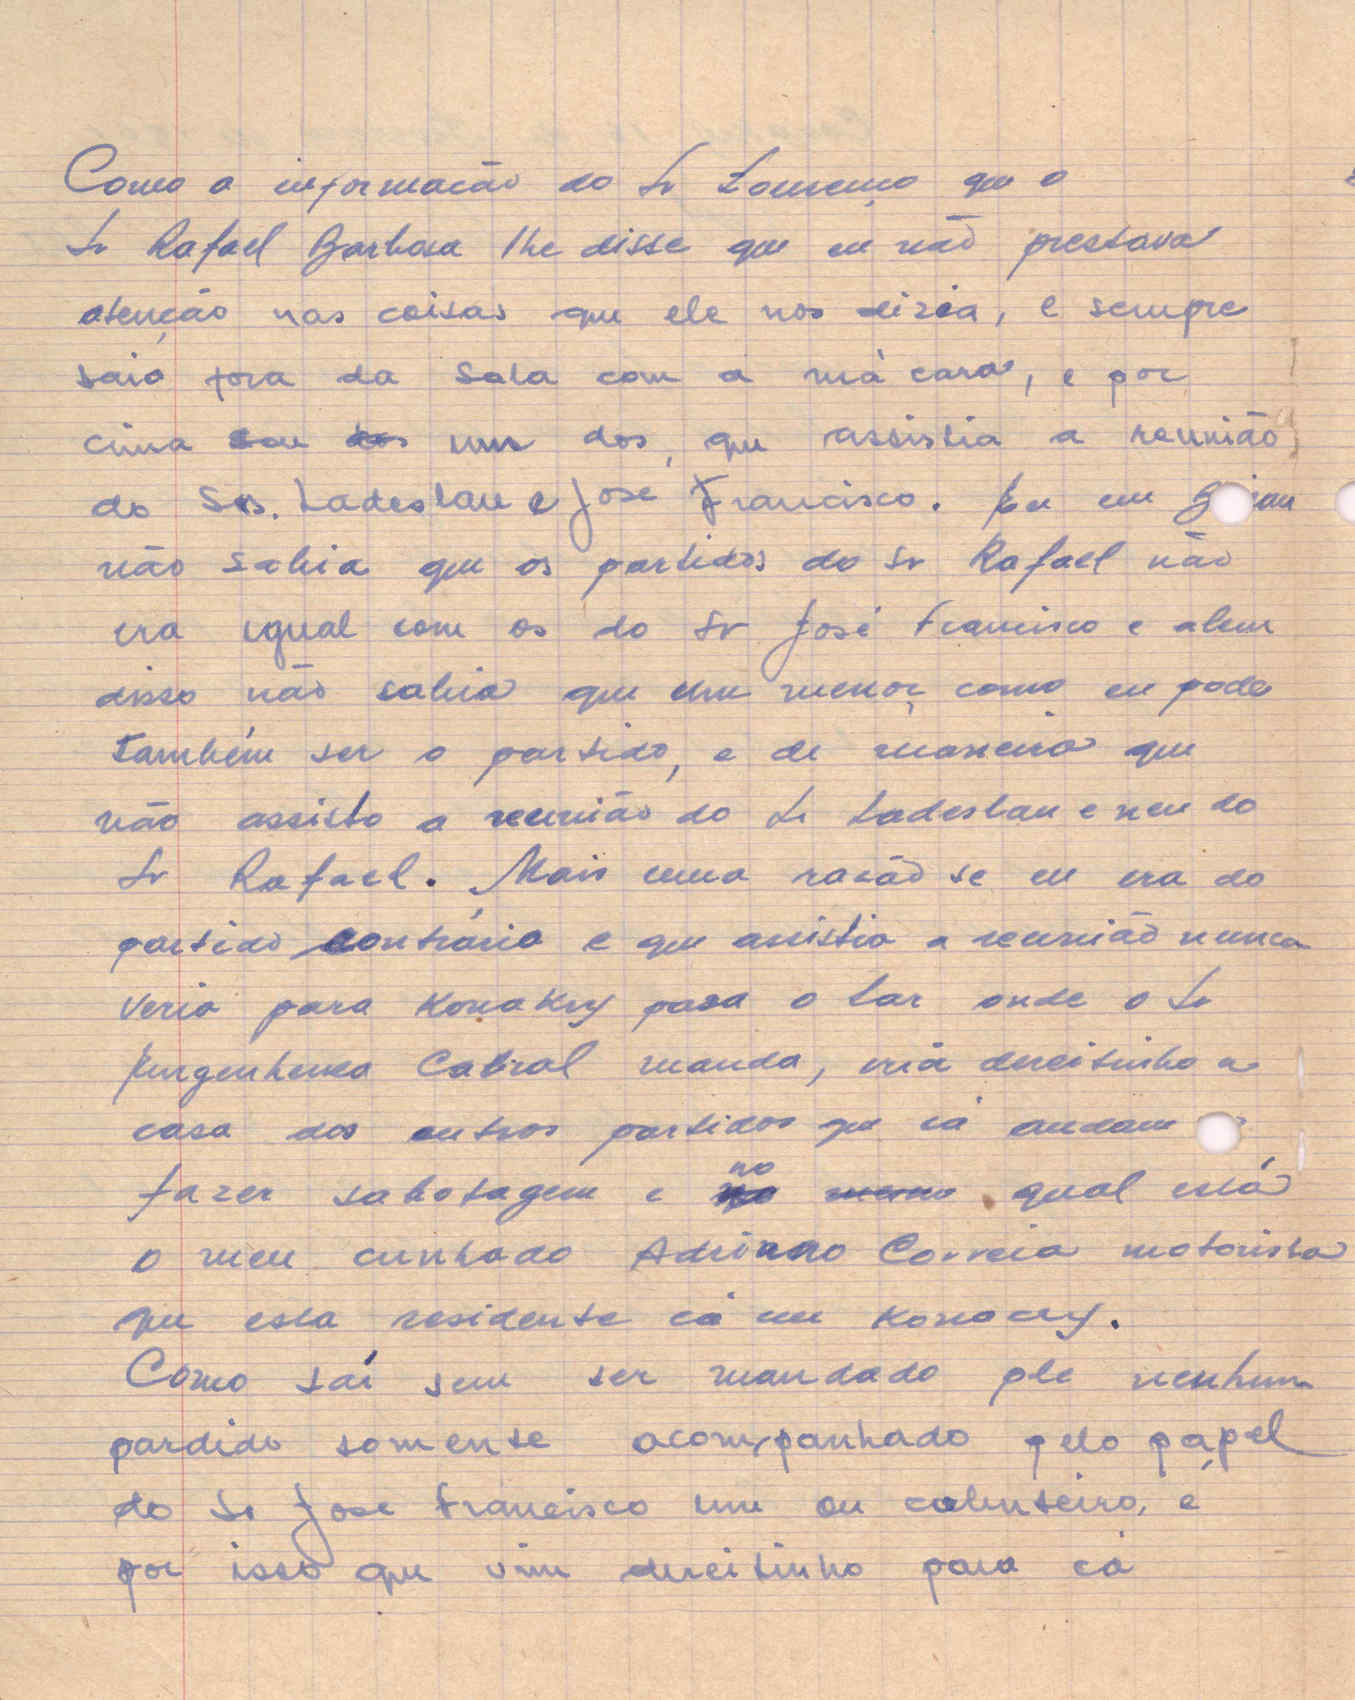 Como a informacão do Sr Lourenço que o
Sr Rafael Barbosa lhe disse que eu não prestava
atenção nas coisas que ele nos dizia, e sempre
saiô fora da sala com a má cara, e por
cima sou dos um dos, que assistia a reunião
do Srs. Ladeslau e José Francisco. Eu em
não sabia que os partidos do Sr Rafael não
era igual com os do Sr José Francisco e alem
disso não sabia que um menor como eu pode
também ser o partido, e de maneira que
não assisto a reunião do Sr Ladeslau e nem do
Sr Rafael. Mais uma razão se eu era do
partido contrário e que assistia a reunião nunca
veria para Konakry para o lar onde o Sr
Cabral manda, iriá direitinho a
casa dos outros partidos que cá andam
fazer sabotagem e no qual está
o meu cunhado Adriano Correia motorista
que esta residente cá em Konacry.
Como saí sem ser mandado ple nenhum
pardido somente acompanhado pelo papel
do Sr José Francisco um ou é
por isso que vim direitinho para cá